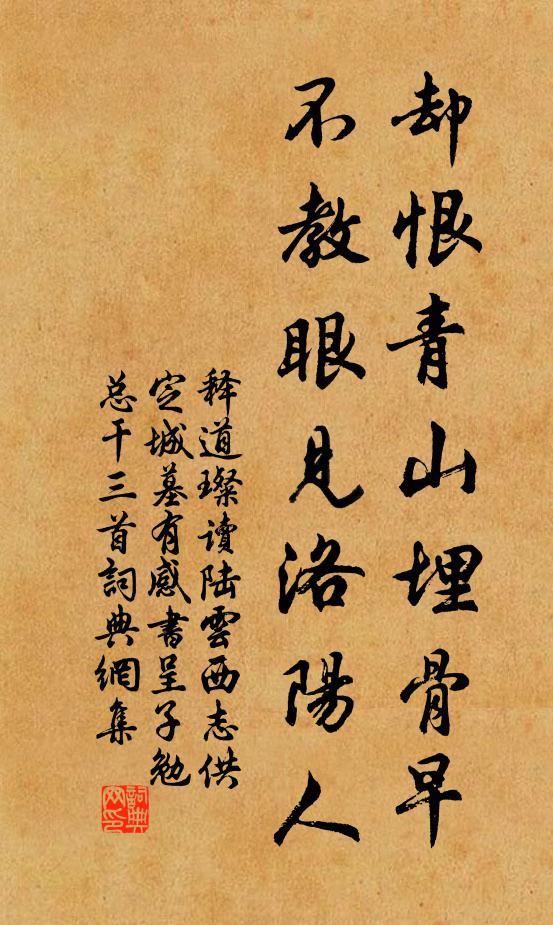 却恨青山埋骨早
不教眼見洛陽人
释道璨讀陆雲西志供
定城墓有感書呈子勉
总干三首詞典網集
詞典
网印